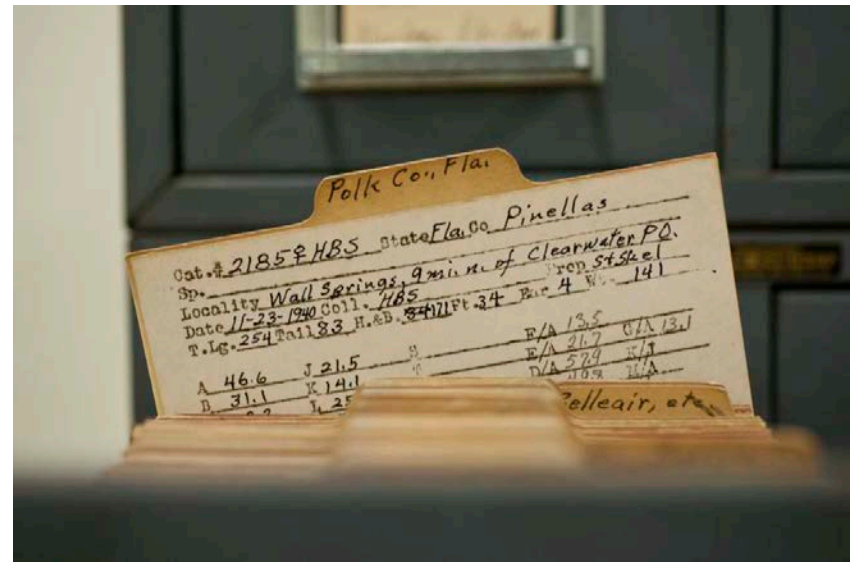 Polk Co., Fla.
Cat.# 2185♀ HBS State Fla. Co Pinellas
Sp.
Locality Wall Springs, 9 mi. n. of Clearwater P.O.
Date 11-23-1940 Coll. HBS Prep St Skel
T.Lg. 254 Tail 83 H.&B. 171 Ft. 34 Ear 4 141
A 46.6 J 21.5 E/A 13.5 G/A 13.1
B 31.1 K 14.1 E/A 21.7
D/A 57.9
Belleair, etc